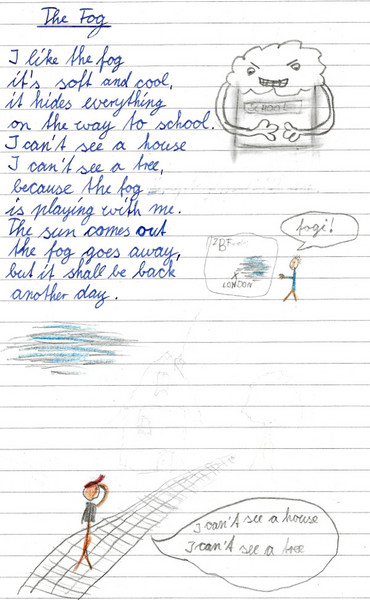 The Fog
I like the fog
it's soft and cool,
it hides everything
on the way to school.
I can't see a house
I can't see a tree,
because the fog
is playing with me.
The sun comes out
the fog goes away,
but it shall be back
another day.
SCHOOL
fogi!
LONDON
I can't see a house
I can't see a tree